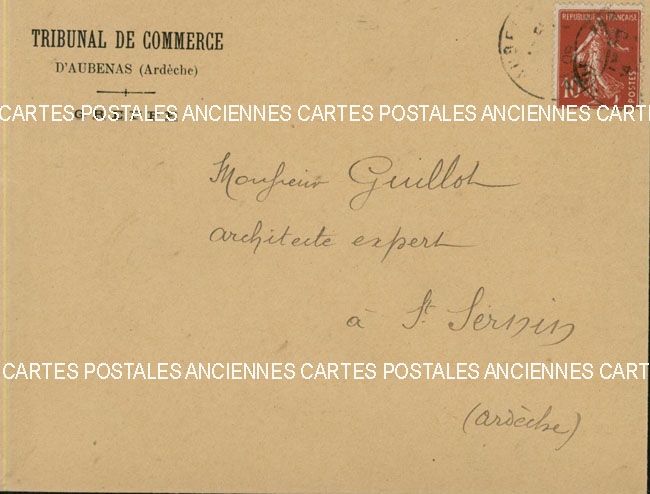 TRIBUNAL DE COMMERCE
D'AUBENAS (Ardèche)
GREFFE
REPUBLIQUE FRANÇAISE
10
POSTES
CARTES POSTALES ANCIENNES CARTES POSTALES ANCIENNES CARTES POSTALES ANCIENNES CART
Monsieur Guillot
architecte expert
à St Sernin
CARTES POSTALES ANCIENNES CARTES POSTALES ANCIENNES CARTES POSTALES ANCIENNES CART
(Ardèche)